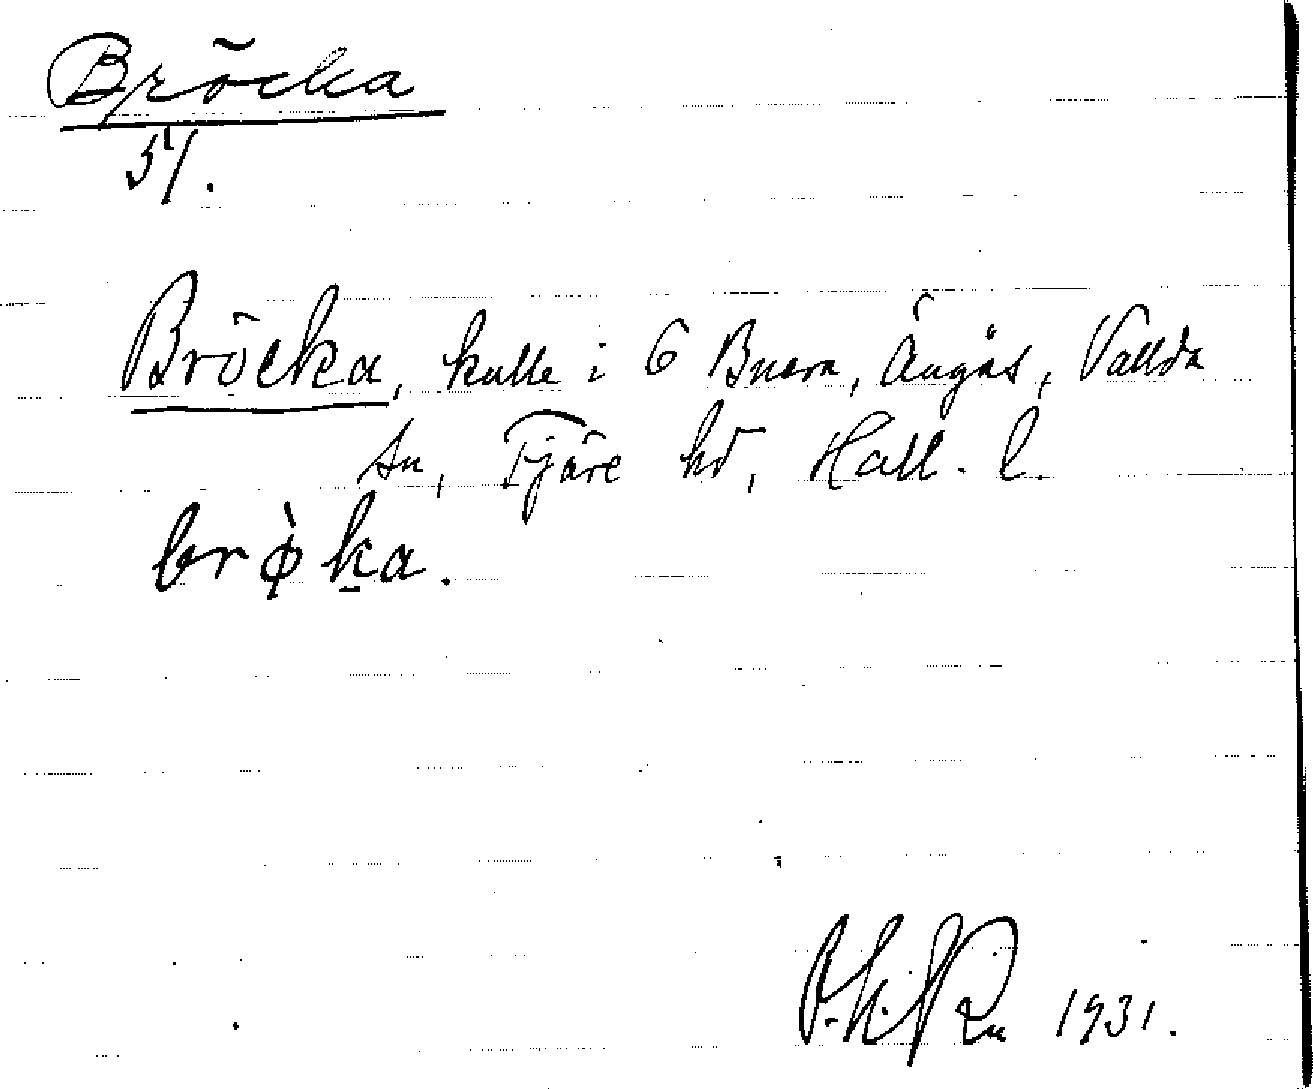 Bröcka
57.
Bröcka, kulle i 6 Buara, Ängås, Vallda
sn, Fjäre hd, Hall. l.
brø̀ka.
1931.